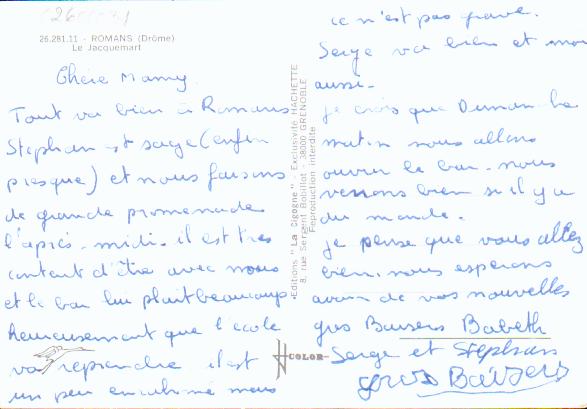 26.281.11 - ROMANS (Drôme)
Le Jacquemart
Chère Mamy
Tout va bien à Romans
Stephan est sage (enfin
presque) et nous faisons
de grande promenades
l'après-midi. il est très
content d'être avec nous
et le bar lui plait beaucoup
heureusement que l'école
va reprendre il est
un peu enrhumé mais
Editions "La Cigogne" - Exclusivité HACHETTE
8, rue Sergent Bobillot - 38000 GRENOBLE
Reproduction interdite
COLOR
ce n'est pas grave.
Serge va bien et moi
aussi.
je crois que Dimanche
matin nous allons
ouvrir le bar. nous
verrons bien si il y a
du monde.
je pense que vous allez
bien. nous espérons
avoir de vos nouvelles
gros Baisers Babeth
Serge et Stephan
gros Baisers